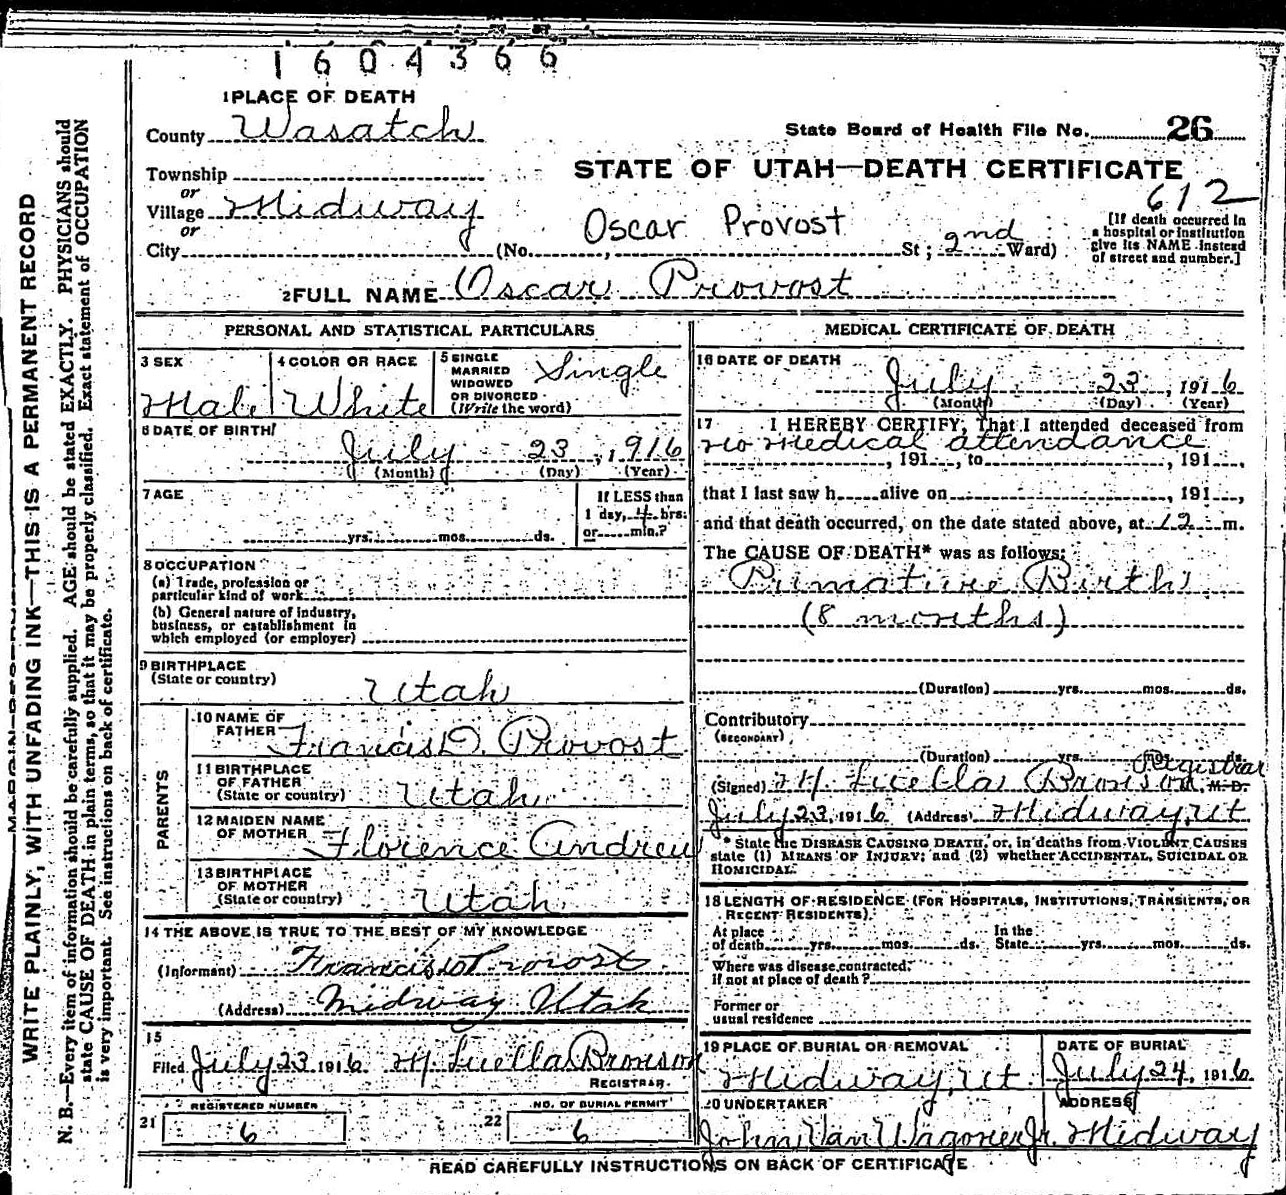 1604366
1 PLACE OF DEATH
County Wasatch
State Board of Health File No. 26
Township
STATE OF UTAH—DEATH CERTIFICATE
or
612
Village Midway
or
Oscar Provost
City (No. , St; 2nd Ward)
[If death occurred in
a hospital or institution
give its NAME instead
of street and number.]
2 FULL NAME Oscar Provost
PERSONAL AND STATISTICAL PARTICULARS
3 SEX
Male
4 COLOR OR RACE
White
5 SINGLE
MARRIED
WIDOWED
OR DIVORCED
(Write the word)
Single
6 DATE OF BIRTH
July 23, 1916
(Month) (Day) (Year)
7 AGE
yrs. mos. ds.
If LESS than
1 day, 4 hrs.
or min.?
8 OCCUPATION
(a) Trade, profession or
particular kind of work
(b) General nature of industry,
business, or establishment in
which employed (or employer)
9 BIRTHPLACE
(State or country)
Utah
PARENTS
10 NAME OF
FATHER
Francis O. Provost
11 BIRTHPLACE
OF FATHER
(State or country)
Utah
12 MAIDEN NAME
OF MOTHER
Florence Andrew
13 BIRTHPLACE
OF MOTHER
(State or country)
Utah
14 THE ABOVE IS TRUE TO THE BEST OF MY KNOWLEDGE
(Informant) Francis O Provost
(Address) Midway Utah
15
Filed July 23 1916 M. Luella Bronson
REGISTRAR.
21 REGISTERED NUMBER
6
22 NO. OF BURIAL PERMIT
6
MEDICAL CERTIFICATE OF DEATH
16 DATE OF DEATH
July 23, 1916
(Month) (Day) (Year)
17 I HEREBY CERTIFY, That I attended deceased from
no medical attendance
, 191 , to , 191 ,
that I last saw h alive on , 191 ,
and that death occurred, on the date stated above, at 12 m.
The CAUSE OF DEATH* was as follows:
Primature Birth
(8 months)
(Duration) yrs. mos. ds.
Contributory
(SECONDARY)
(Duration) yrs. ds.
Registrar
(Signed) M. Luella Bronson, M. D.
July 23, 1916 (Address) Midway, Ut
* State the DISEASE CAUSING DEATH, or, in deaths from VIOLENT CAUSES
state (1) MEANS OF INJURY; and (2) whether ACCIDENTAL, SUICIDAL OR
HOMICIDAL.
18 LENGTH OF RESIDENCE (FOR HOSPITALS, INSTITUTIONS, TRANSIENTS, OR
RECENT RESIDENTS).
At place In the
of death yrs. mos. ds. State yrs. mos. ds.
Where was disease contracted,
if not at place of death?
Former or
usual residence
19 PLACE OF BURIAL OR REMOVAL
Midway, Ut
DATE OF BURIAL
July 24, 1916
20 UNDERTAKER
John Van Wagoner Jr.
ADDRESS
Midway
READ CAREFULLY INSTRUCTIONS ON BACK OF CERTIFICATE
WRITE PLAINLY, WITH UNFADING INK—THIS IS A PERMANENT RECORD
N. B.—Every item of information should be carefully supplied. AGE should be stated EXACTLY. PHYSICIANS should
state CAUSE OF DEATH in plain terms, so that it may be properly classified. Exact statement of OCCUPATION
is very important. See instructions on back of certificate.